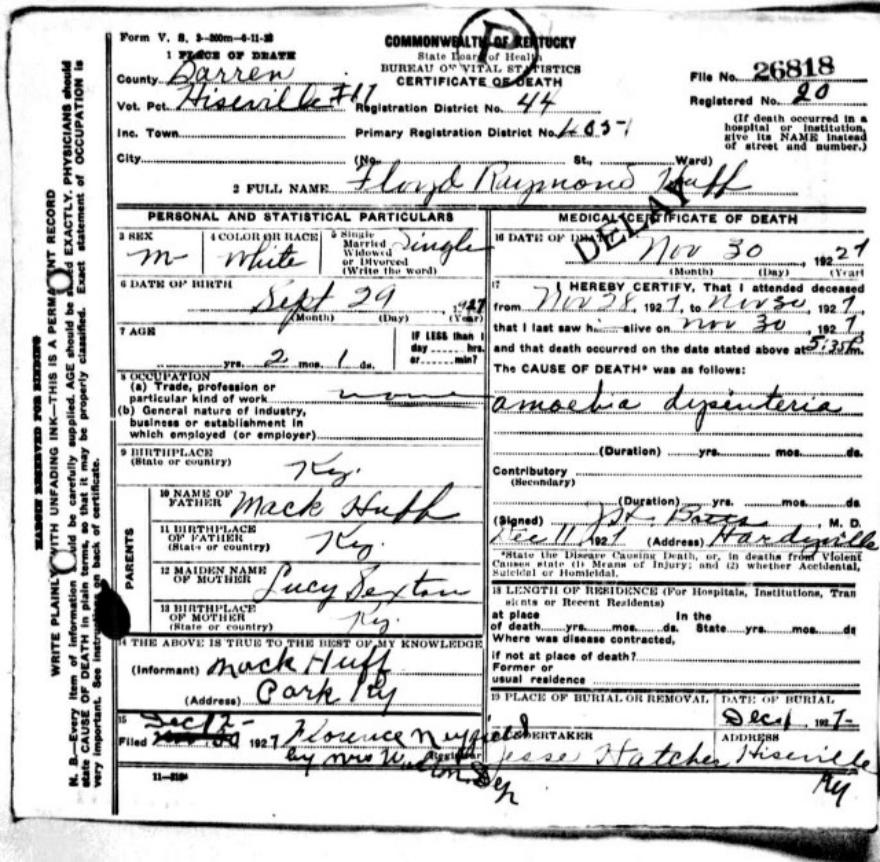 Form V. S. 2-200m-6-11-26
COMMONWEALTH OF KENTUCKY
State Board of Health
BUREAU OF VITAL STATISTICS
CERTIFICATE OF DEATH
1 PLACE OF DEATH
County Barren
Vot. Pct. Hiseville #17
Registration District No. 44
Inc. Town
Primary Registration District No.
City (No. St., Ward)
File No. 26818
Registered No. 20
(If death occurred in a
hospital or institution,
give its NAME instead
of street and number.)
2 FULL NAME Floyd Raymond Huff
DELAY
PERSONAL AND STATISTICAL PARTICULARS
3 SEX
m
4 COLOR OR RACE
White
5 Single
Married
Widowed
or Divorced
(Write the word)
Single
6 DATE OF BIRTH
Sept 29, 1927
(Month) (Day) (Year)
7 AGE
yrs. 2 mos. 1 ds.
IF LESS than 1
day hrs.
or min?
8 OCCUPATION
(a) Trade, profession or
particular kind of work none
(b) General nature of industry,
business or establishment in
which employed (or employer)
9 BIRTHPLACE
(State or country)
Ky.
PARENTS
10 NAME OF
FATHER Mack Huff
11 BIRTHPLACE
OF FATHER
(State or country) Ky.
12 MAIDEN NAME
OF MOTHER Lucy Sexton
13 BIRTHPLACE
OF MOTHER
(State or country) Ky.
14 THE ABOVE IS TRUE TO THE BEST OF MY KNOWLEDGE
(Informant) Mack Huff
(Address) Park Ky
15
Dec 12-
Filed 1927 Florence
by Mrs
Registrar
Dep
11-3184
MEDICAL CERTIFICATE OF DEATH
16 DATE OF DEATH
Nov 30, 1927
(Month) (Day) (Year)
17 I HEREBY CERTIFY, That I attended deceased
from Nov 28, 1927, to Nov 30, 1927,
that I last saw h alive on Nov 30, 1927,
and that death occurred on the date stated above at 5:35 P.
The CAUSE OF DEATH* was as follows:
amoebia dysenteria
(Duration) yrs. mos. ds.
Contributory
(Secondary)
(Duration) yrs. mos. ds.
(Signed) Botts, M. D.
Dec 11 1927 (Address) Hardyville
*State the Disease Causing Death, or, in deaths from Violent
Causes state (1) Means of Injury; and (2) whether Accidental,
Suicidal or Homicidal.
18 LENGTH OF RESIDENCE (For Hospitals, Institutions, Tran
sients or Recent Residents)
at place In the
of death yrs. mos. ds. State yrs. mos. ds
Where was disease contracted,
if not at place of death?
Former or
usual residence
19 PLACE OF BURIAL OR REMOVAL
DATE OF BURIAL
Dec 1 1927
UNDERTAKER
ADDRESS
Jesse Hatcher Hiseville
Ky
MARGIN RESERVED FOR BINDING
WRITE PLAINLY WITH UNFADING INK—THIS IS A PERMANENT RECORD
N. B.—Every item of information should be carefully supplied. AGE should be stated EXACTLY. PHYSICIANS should
state CAUSE OF DEATH in plain terms, so that it may be properly classified. Exact statement of OCCUPATION is
very important. See instructions on back of certificate.